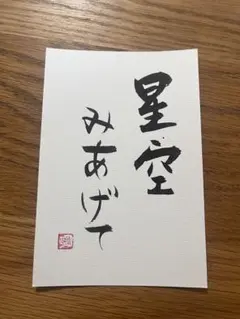 星空
みあげて